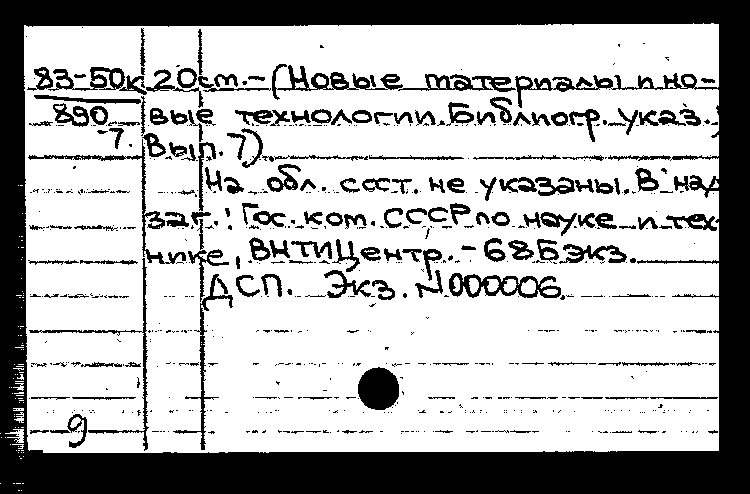 83-50к 20см.-(Новые материалы и но-
890 вые технологии. Библиогр. указ.;
-7. Вып. 7)
На обл. сост. не указаны. В над
заг.: Гос. ком. СССР по науке и тех-
нике, ВНТИЦентр. - 685 экз.
ДСП. Экз. N000006.
9